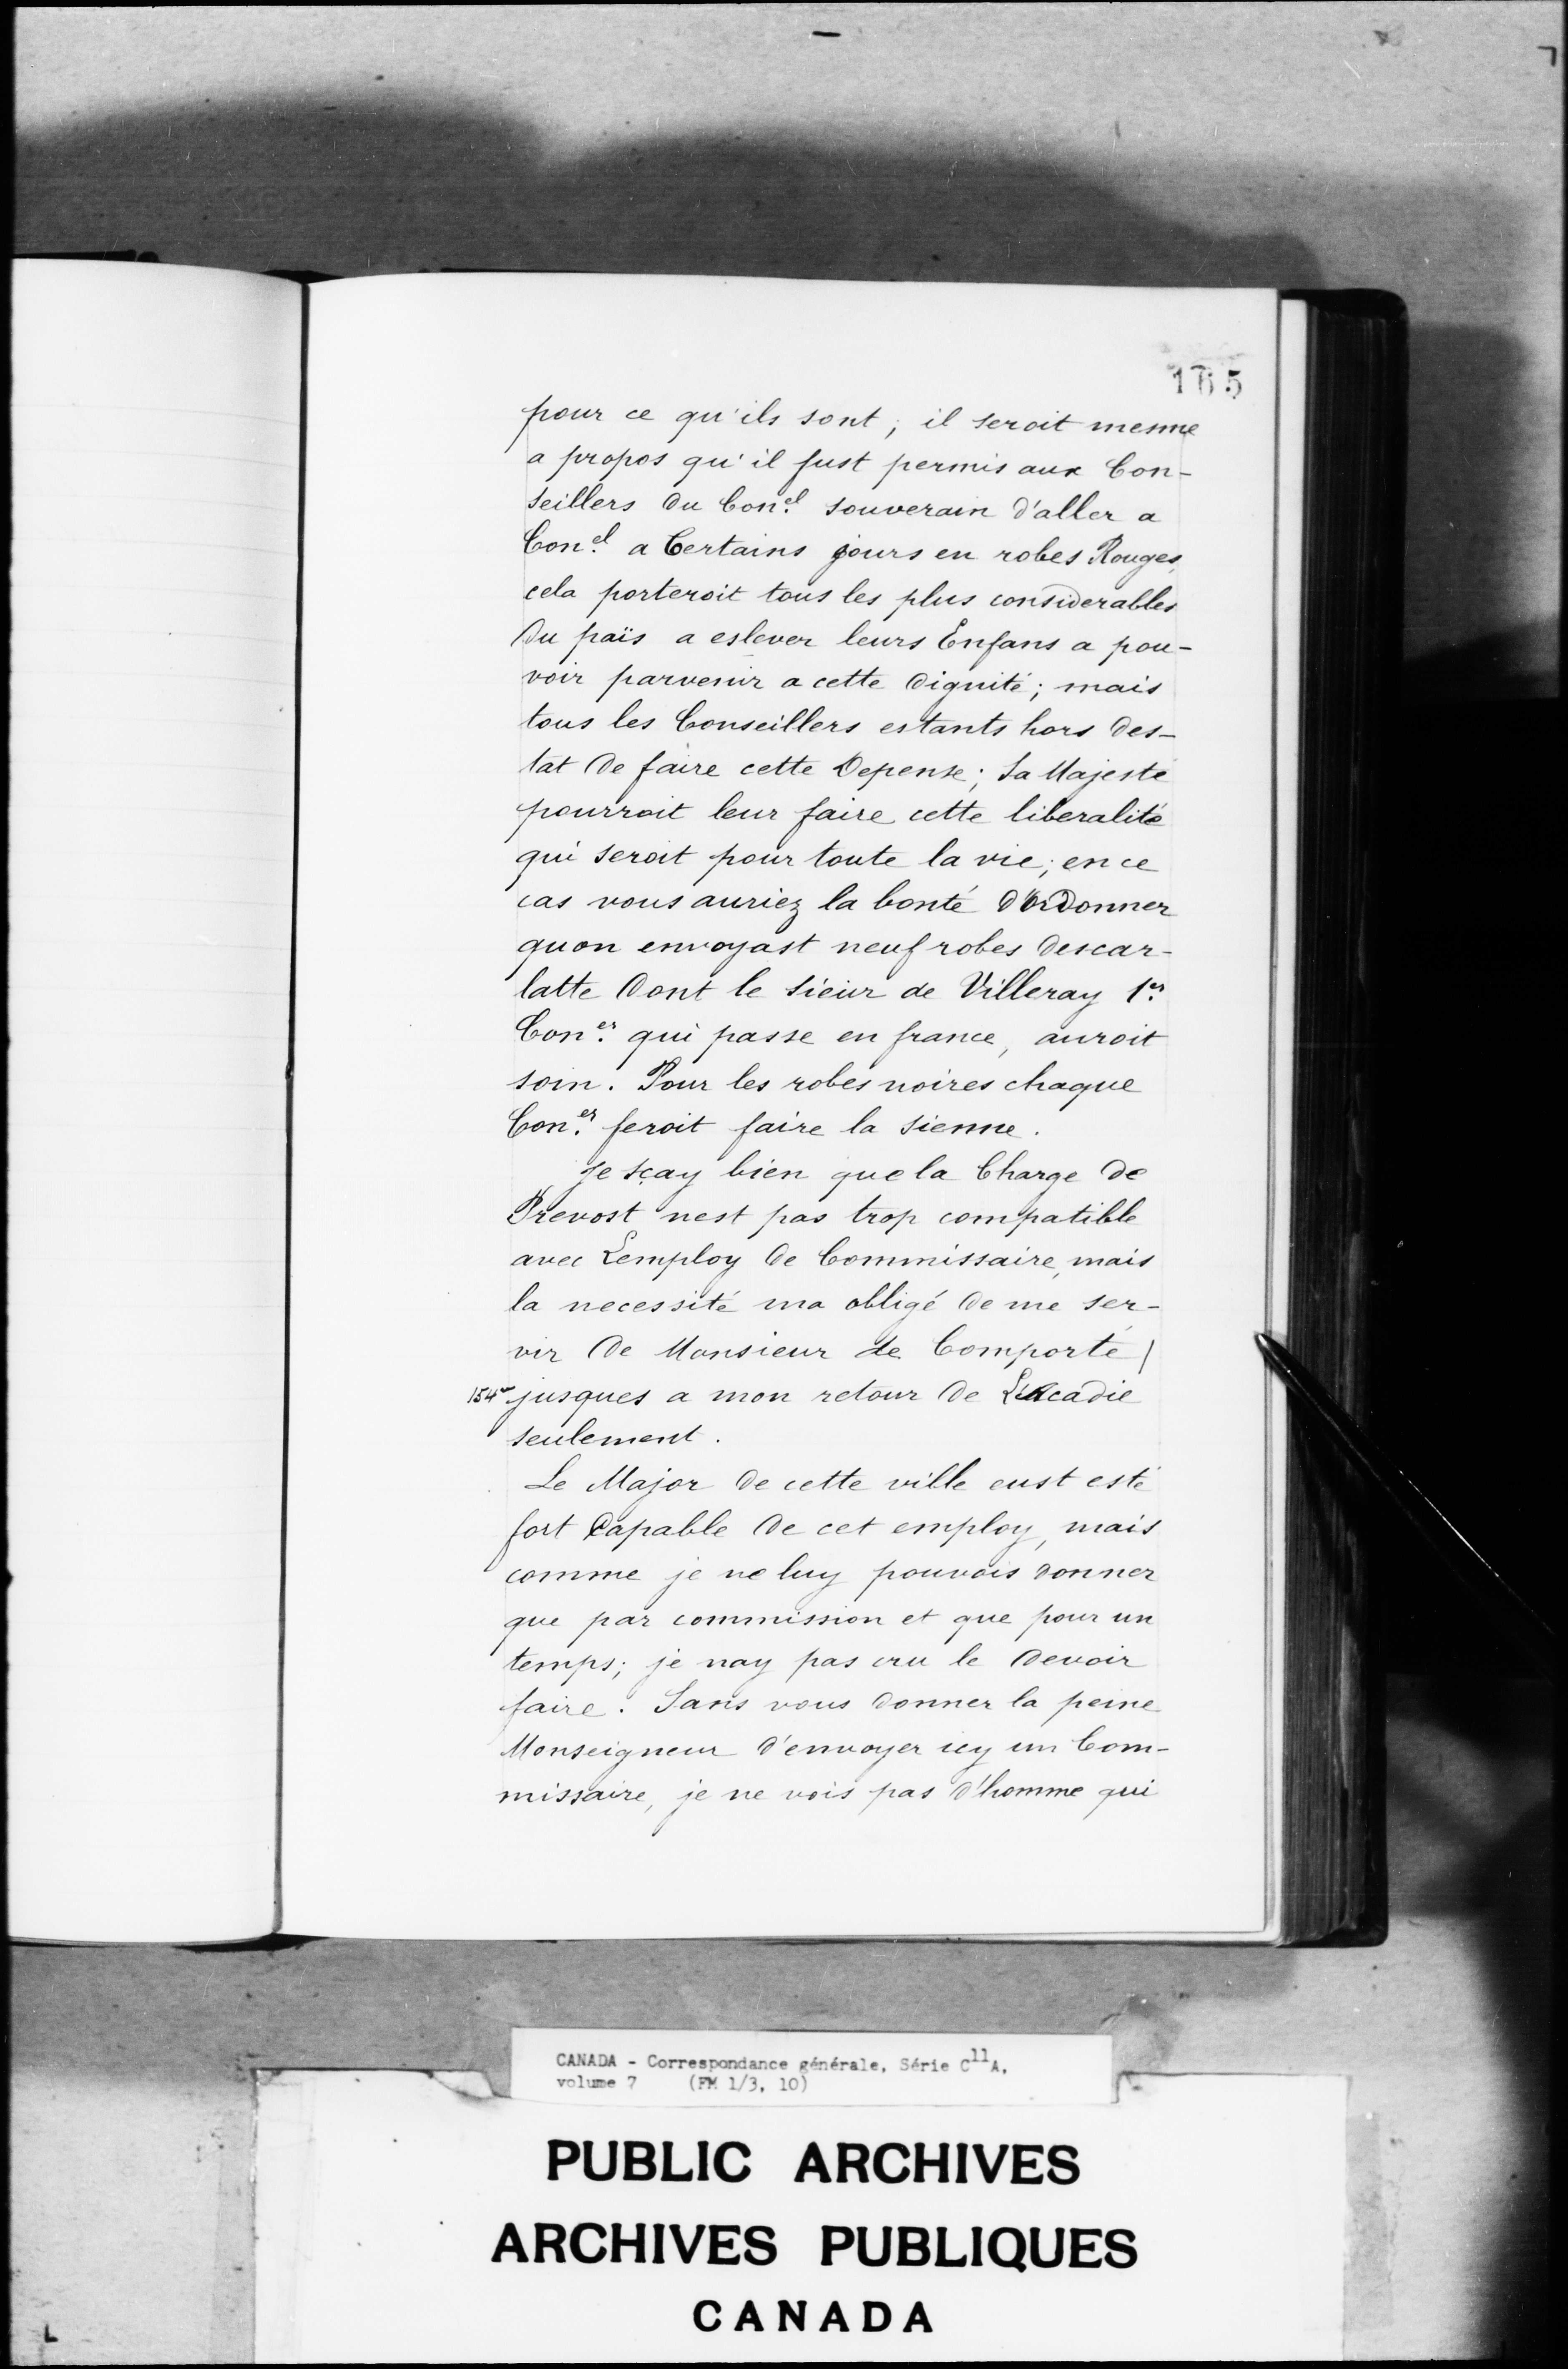 165
pour ce qu'ils sont, il seroit mesme
a propos qu'il fust permis aux Con-
seillers du Con.el souverain d'aller a
Con.el a Certains jours en robes Rouges,
cela porteroit tous les plus considerables
du païs a eslever leurs Enfans a pou-
voir parvenir a cette dignité; mais
tous les Conseillers estants hors des-
tat de faire cette Depense; Sa Majesté
pourroit leur faire cette liberalité
qui seroit pour toute la vie; en ce
cas vous auriez la bonté d'ordonner
quon envoyast neuf robes descar-
latte dont le sieur de Villeray 1.er
Con.er qui passe en france, auroit
soin. Pour les robes noires chaque
Con.er feroit faire la sienne.
Je sçay bien que la Charge de
Prevost nest pas trop compatible
avec Lemploy de Commissaire, mais
la necessité ma obligé de me ser-
vir de Monsieur de Comporté /
154 jusques a mon retour de Lacadie
seulement.
Le Major de cette ville eust esté
fort Capable de cet employ, mais
comme je ne luy pouvois donner
que par commission et que pour un
temps; je nay pas cru le devoir
faire. Sans vous donner la peine
Monseigneur d'envoyer icy un Com-
missaire, je ne vois pas d'homme qui
CANADA - Correspondance générale, Série C11A,
volume 7 (FM 1/3, 10)
PUBLIC ARCHIVES
ARCHIVES PUBLIQUES
CANADA